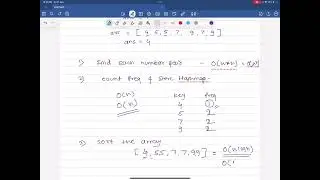 arr = [ 4,5,5,7, 9,7,9 ]
ans = 4
1) find each number pair - O(n*n) =
2) count freq & store Hashmap
O(n) key freq
O(n) 4 1
5 2
7 2
9 2
3) sort the array
[ 4,5,5,7,7,9,9 ] = O(n log n)
O(